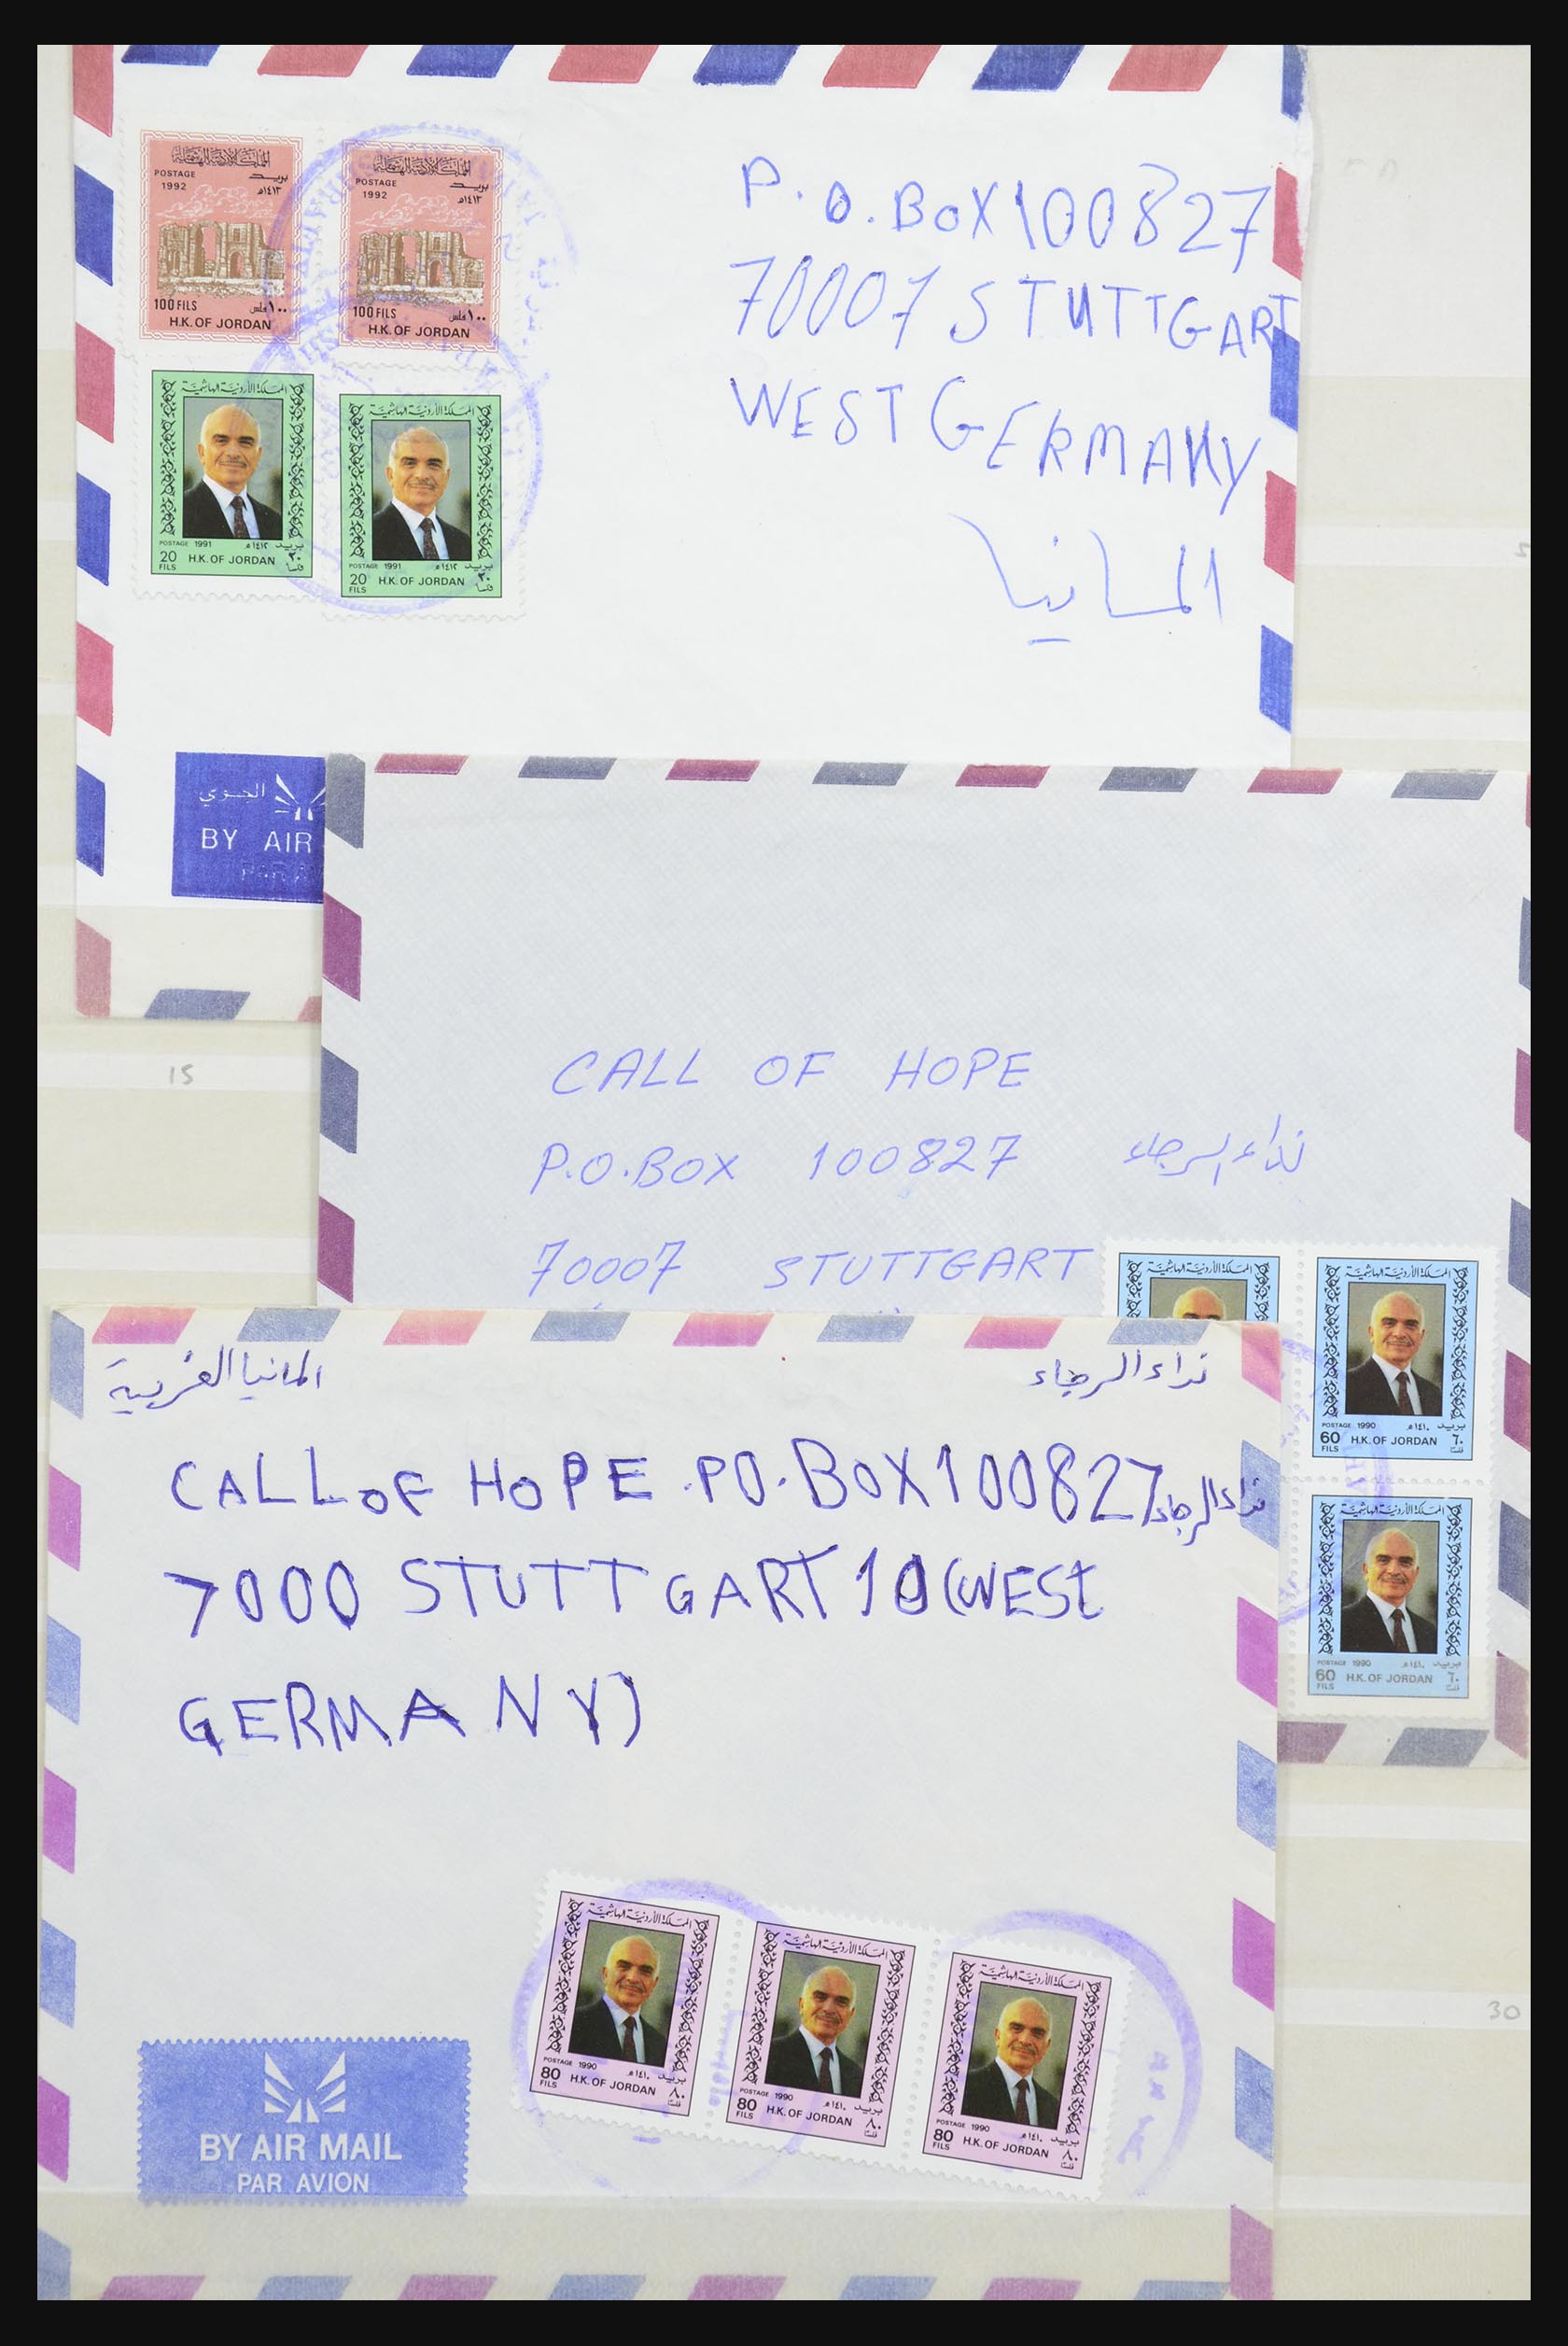 المملكة الأردنية الهاشمية
POSTAGE
1992
بريد
١٤١٣هـ
100 FILS
١٠٠ فلس
H.K. OF JORDAN
المملكة الأردنية الهاشمية
POSTAGE
1992
بريد
١٤١٣هـ
100 FILS
١٠٠ فلس
H.K. OF JORDAN
المملكة الأردنية الهاشمية
POSTAGE 1991
١٤١٢هـ بريد
20 FILS
H.K. OF JORDAN
٢٠ فلسا
المملكة الأردنية الهاشمية
POSTAGE 1991
١٤١٢هـ بريد
20 FILS
H.K. OF JORDAN
٢٠ فلسا
P.O.BOX 100827
70007 STUTTGART
WEST GERMANY
المانيا
الجوي
BY AIR
PAR A
15
CALL OF HOPE
P.O.BOX 100827 نداء الرجاء
70007 STUTTGART
المملكة الأردنية الهاشمية
المملكة الأردنية الهاشمية
POSTAGE 1990
١٤١٠هـ بريد
60 FILS
H.K. OF JORDAN
٦٠ فلسا
المملكة الأردنية الهاشمية
POSTAGE 1990
١٤١٠هـ بريد
60 FILS
H.K. OF JORDAN
٦٠ فلسا
نداء الرجاء
المانيا الغربية
CALL OF HOPE .PO.BOX 100827 نداء الرجاء
7000 STUTTGART 10 (WEST
GERMANY)
المملكة الأردنية الهاشمية
POSTAGE 1990
١٤١٠هـ بريد
80 FILS
H.K. OF JORDAN
٨٠ فلسا
المملكة الأردنية الهاشمية
POSTAGE 1990
١٤١٠هـ بريد
80 FILS
H.K. OF JORDAN
٨٠ فلسا
المملكة الأردنية الهاشمية
POSTAGE 1990
١٤١٠هـ بريد
80 FILS
H.K. OF JORDAN
٨٠ فلسا
BY AIR MAIL
PAR AVION
30